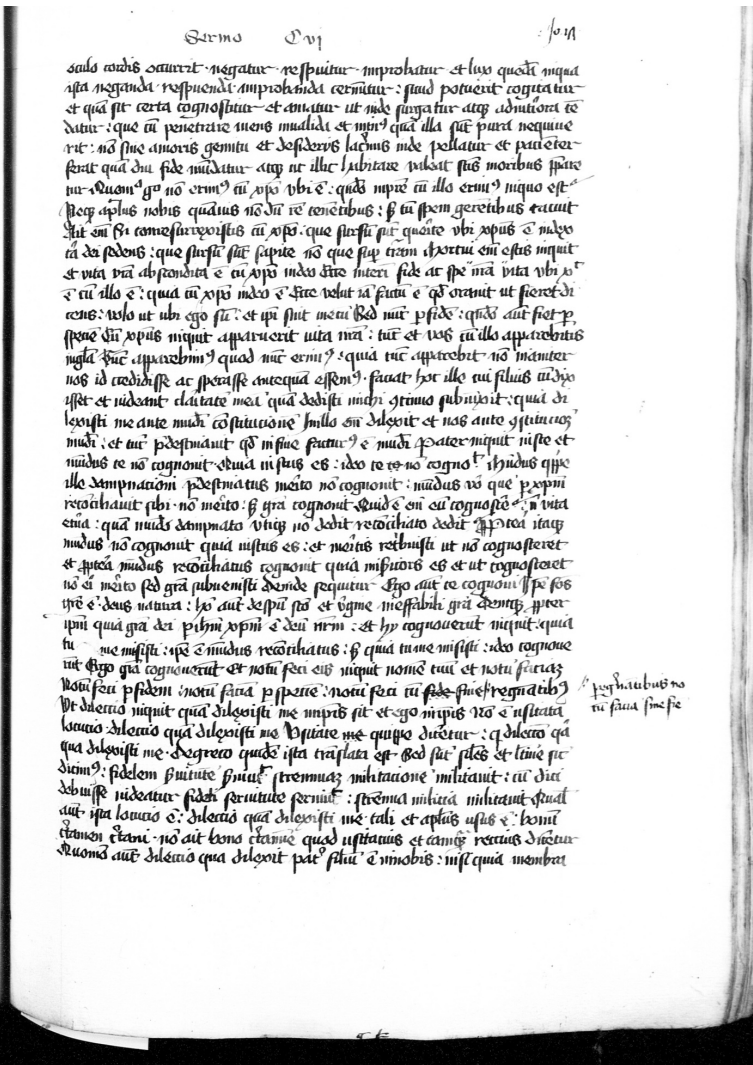 Sermo Cvj
oculo cordis occurrit · negatur · respuitur · improbatur et lux quedā inqua
ista neganda · respuenda · improbanda cernuntur : sicud potuerit cogitatur
et quā sit certa cognoscitur et amatur ut inde surgatur atqꝫ adinteriora tē
datur : que cū penetrare mens inualida et minꝰ quā illa sūt pura nequiue
rit : nō sine amoris gemitu et desiderijs lacrimis inde pellatur et pacienter
ferat quā diu fide mūdatur atqꝫ ut illic habitare valeat scīs moribus ꝑpare
tur Quomō gͦ nō erimꝰ cū xpō vbi ē : quādo inpatre cū illo erimꝰ inquo est
Neqꝫ aplus nobis quāuis nō dū rē tenentibus : sꝫ tū spem gerentibus tacuit
Ait em̄ Si conresurrexistis cū xpō · que sursū sūt querite vbi xpus ē index
tā dei sedens : que sursū sunt sapite nō que sup trām Mortui em̄ estis inquit
et vita vrā abscondita ē cū xpō indeo Ecce interī fide ac spe nrā vita vbi x
ē cū illo ē : quia cū xpō indeo ē Ecce velut iā factū ē qđ orauit ut fieret di
cens : volo ut ubi ego sū : et ipī sint mecū Sed nūc ꝑ fidē : quādo aūt fiet ꝑ
spēm Cū xpus inquit apparuerit vita vrā : tūc et vos cū illo apparebitis
inglā Tūc apparebimꝰ quod tūc erimꝰ : quia tūc apparebit nō inaniter
nos id credidisse ac sperasse antequā essemꝰ · faciat hoc ille cui filius cū dix
isset et uideant claritatē meā quā dedisti michi ꝯtinuo subiūxit : quia di
lexisti me ante mūdi cōstitucionē Inillo em̄ dilexit et nos ante ꝯstitucioꝫ
mūdi : et tūc p̄destinauit qđ infine facturꝰ ē mūdi Pater inquit iuste et
mūdus te nō cognouit · Quia iustus es : ideo te nō cogno Mūdus qppe
ille dampnacioni p̄destinatus merito nō cognouit : mūdus vō que ꝑ xpm
reconciliauit sibi · nō merito : sꝫ grā cognouit Quid ē em̄ eū cognoscē nisi vita
etnā : quā mūdo dampnato vtiqꝫ nō dedit reconciliato dedit Proptea itaqꝫ
mūdus nō cognouit quia iustus es : et meritis retribuisti ut nō cognosceret
et ꝓptea mūdus recōciliatus cognouit quia misericors es et ut cognosceret
nō ei merito sed grā subuenisti Deinde sequitur Ego aūt te cognoui Ipse fons
grē ē deus natura : hō aūt despū scō et v̄gine ineffabili grā Deniqꝫ ꝓpter
ipm̄ quia grā dei ꝑ ihm̄ xpm̄ ē dnm̄ nrm : et hij cognouerūt inquit : quia
tu me misisti : ipe ē mūdus reconciliatus : sꝫ quia tu me misisti : ideo cognoue
rūt Ergo grā cognouerūt Et notū feci eis inquit nomē tuū et notū faciaꝫ
Notū feci ꝑ fidem : notū faciā ꝑ speciem : notū feci cū fide fine regnātibꝰ
Vt dilectio inquit quā dilexisti me inipsis sit et ego inipsis Nō ē usitata
locucio · dilectio quā dilexisti me Vsitate me quippe diceretur : dilectio
qua dilexisti me · Degreco quidē ista translata est Sed sūt siles et latine sic
dicimꝰ : fidelem seruitutē seruiuit · strennuaꝫ militacionē militauit : cū dici
debuisse uideatur fideli seruitute seruiuit : strennua milicia militauit Qual
aūt ista locucio ē : dilectio quā dilexisti me · tali et aplus usus ē : bonū
certamen certaui · nō ait bono certamīe quod usitacius et tamqꝫ rectius diceretur
Quomō aūt dilectio qua dilexit pat filiū ē innobis : nisi quia membra
peregrinatibus no
tū faciā sine fie